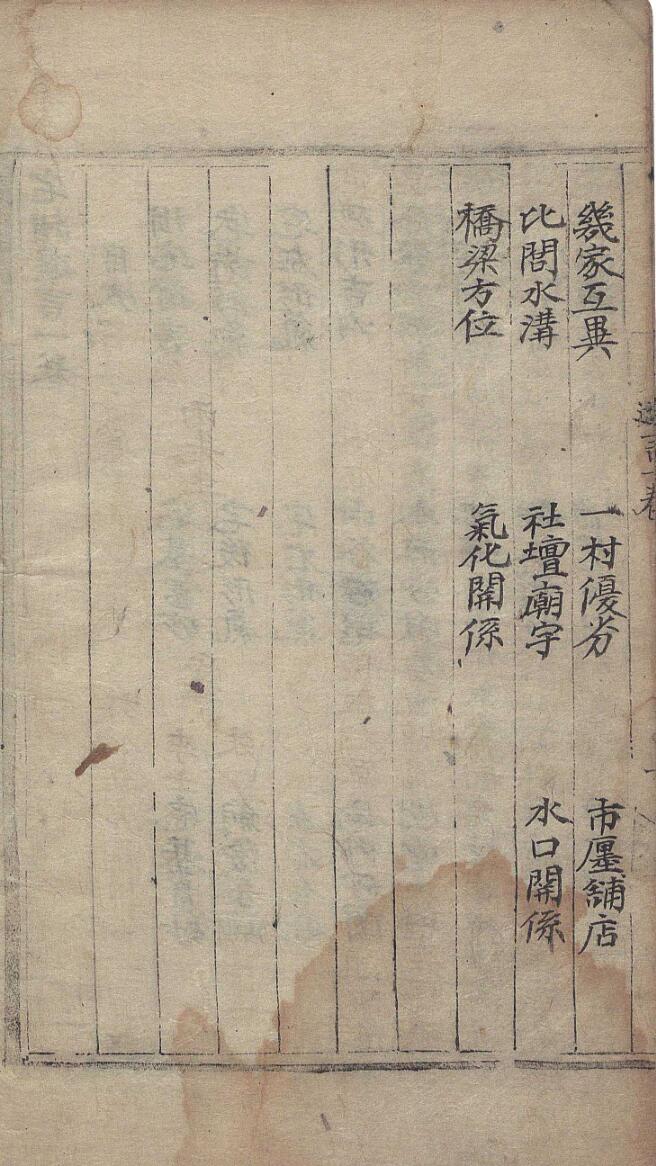 幾家互異 一村優劣 市廛舖店
比閭水溝 社壇廟宇 水口關係
橋梁方位 氣化關係